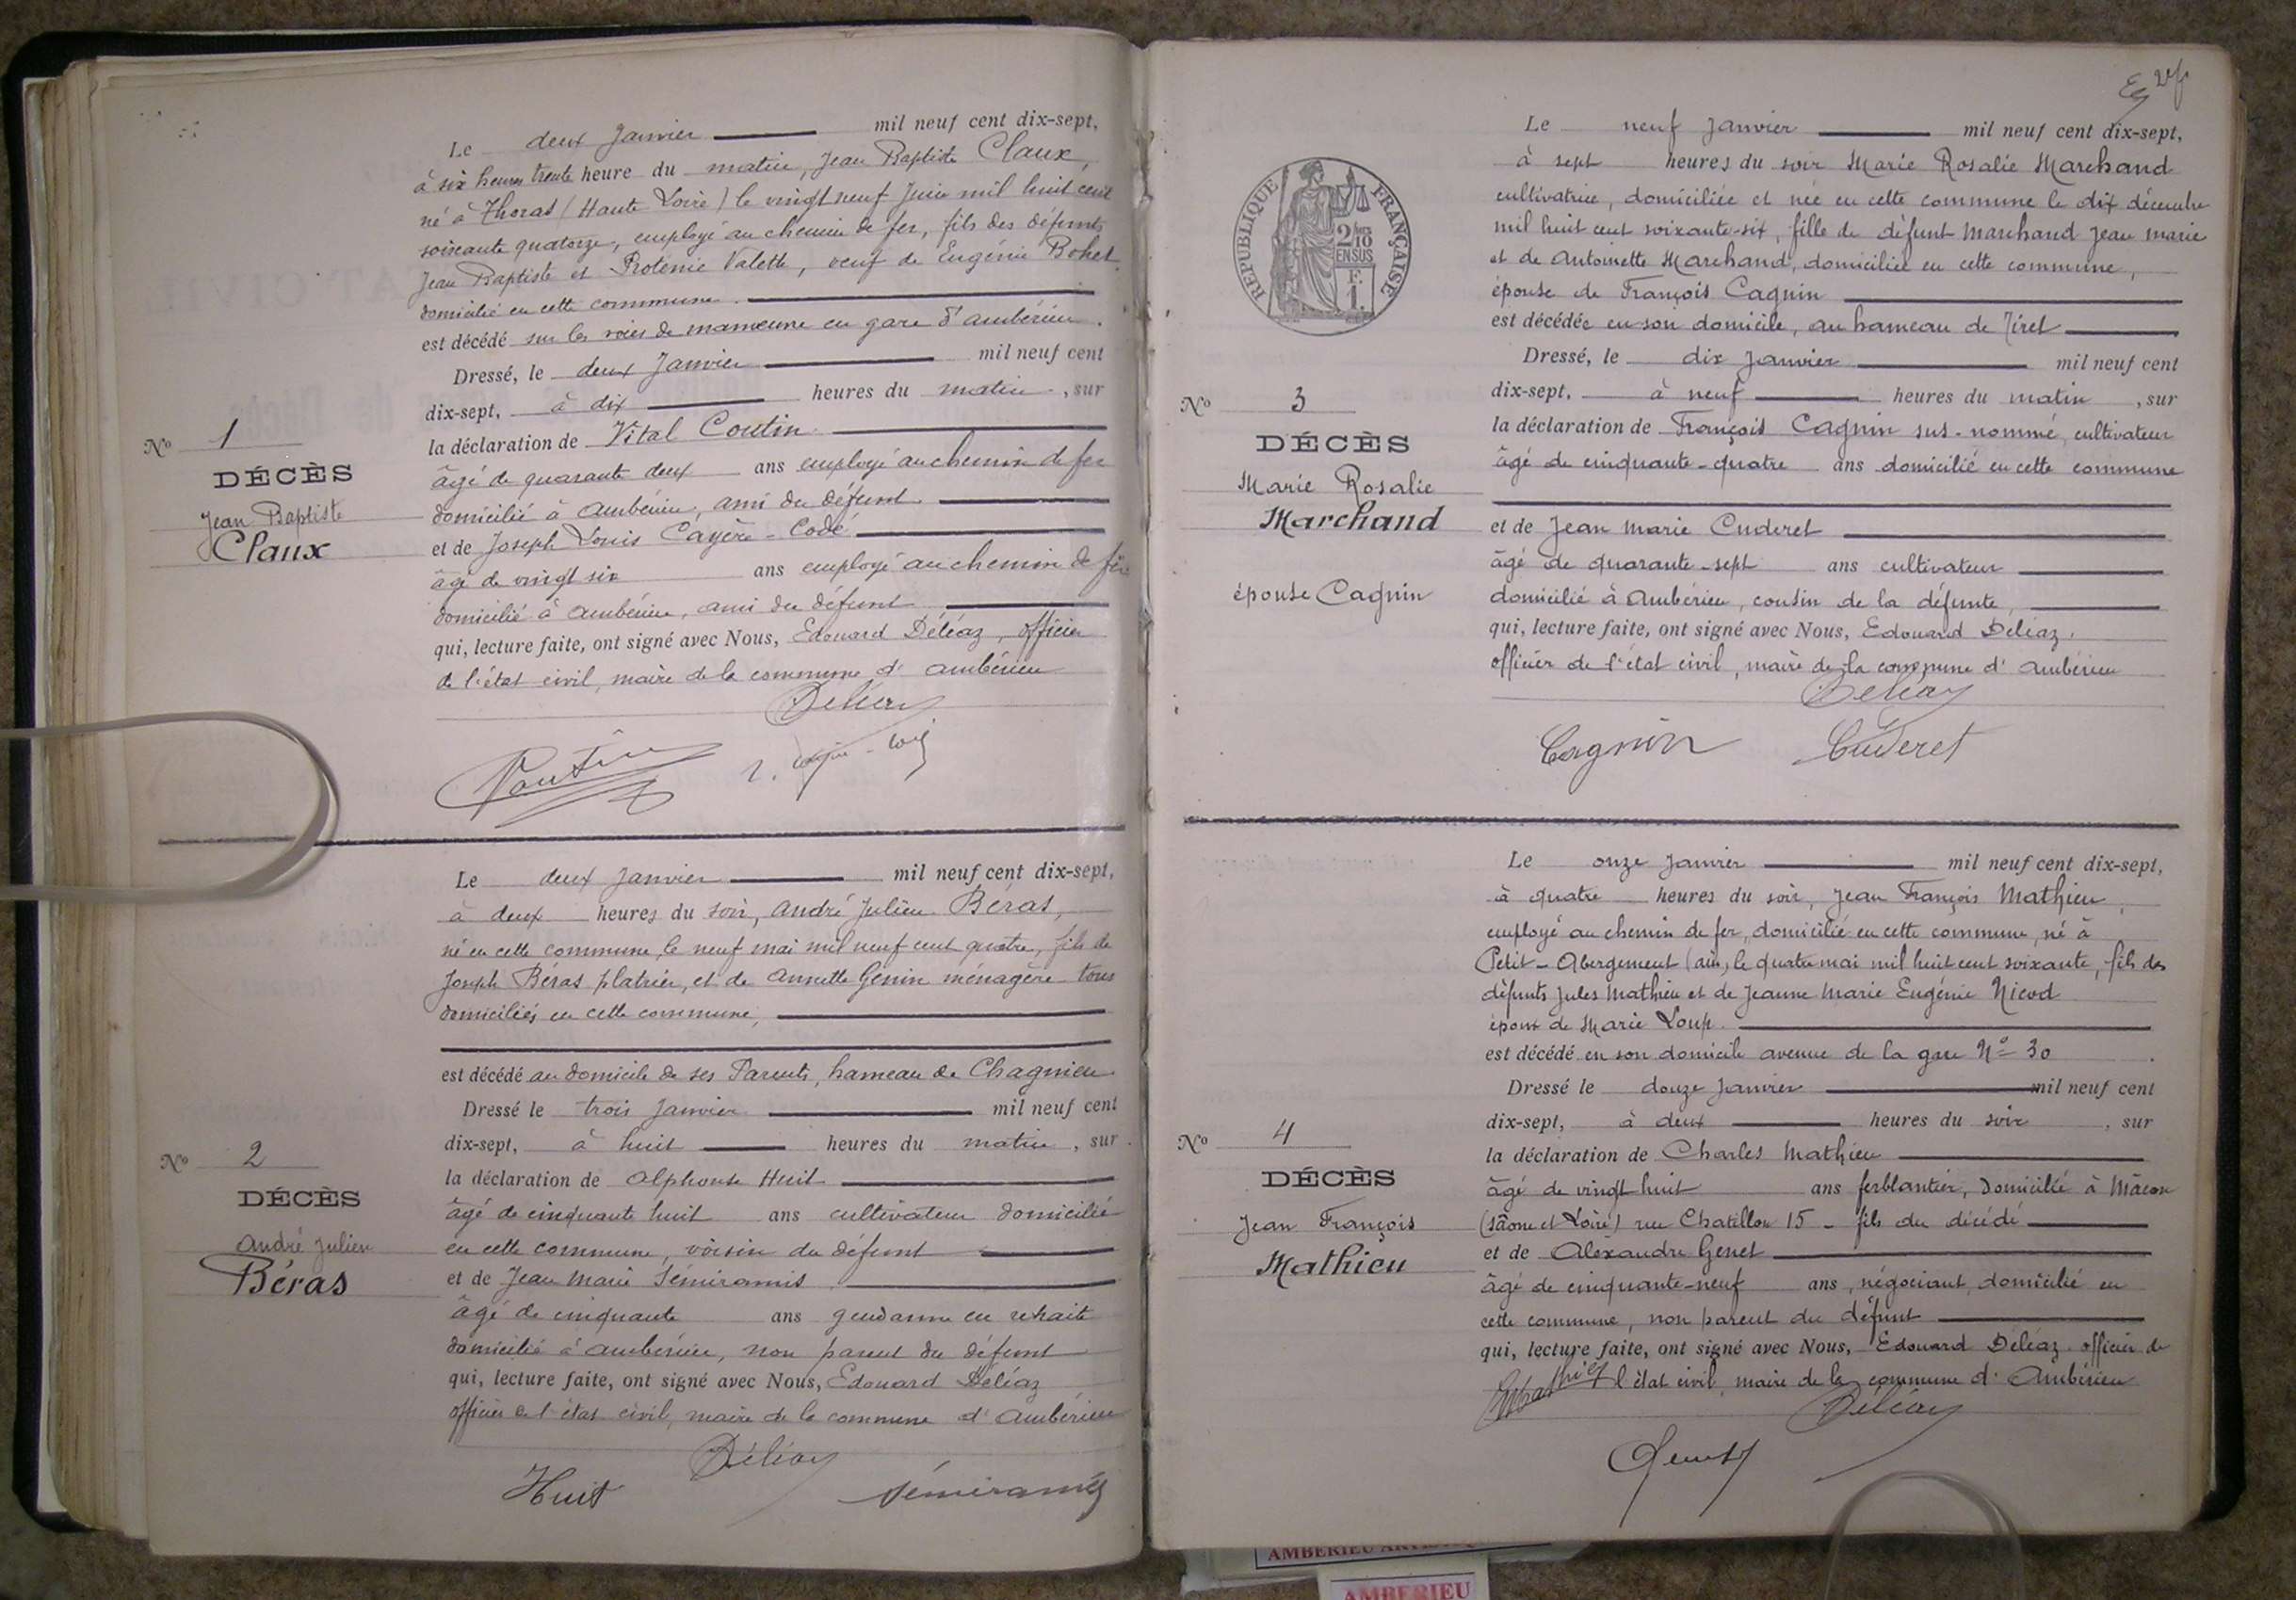 Le deux Janvier mil neuf cent dix-sept,
à six heures trente heure du matin, Jean Baptiste Claux,
né à Thoras (Haute Loire) le vingt neuf Juin mil huit cent
soixante quatorze, employé au chemin de fer, fils des défunts
Jean Baptiste et Valette, veuf de Eugénie
domicilié en cette commune.
est décédé sur les voies de manoeuvre en gare d'Ambérieu.
Dressé, le deux Janvier mil neuf cent
dix-sept, à dix heures du matin, sur
la déclaration de Vital Coutin
âgé de quarante deux ans employé au chemin de fer
domicilié à Ambérieu, ami du défunt.
et de Joseph Louis Cayère-Codé
âgé de vingt six ans employé au chemin de fer
domicilié à Ambérieu, ami du défunt
qui, lecture faite, ont signé avec Nous, Edouard Déléaz, officier
de l'état civil, maire de la commune d'Ambérieu
Déléaz
Coutin
No 1
DÉCÈS
Jean Baptiste
Claux
Le deux Janvier mil neuf cent dix-sept,
à deux heures du soir, André Julien Béras,
né en cette commune, le neuf mai mil neuf cent quatre, fils de
Joseph Béras platrier, et de Annette Genin ménagère tous
domiciliés en cette commune,
est décédé au domicile de ses Parents, hameau de Chagnieu
Dressé le trois Janvier mil neuf cent
dix-sept, à huit heures du matin, sur
la déclaration de Alphonse Huit
âgé de cinquante huit ans cultivateur domicilié
en cette commune, voisin du défunt
et de Jean Marie Sémiramis
âgé de cinquante ans gendarme en retraite
domicilié à Ambérieu, non parent du défunt
qui, lecture faite, ont signé avec Nous, Edouard Déléaz
officier de l'état civil, maire de la commune d'Ambérieu
Déléaz
Huit
Sémiramis
No 2
DÉCÈS
André Julien
Béras
RÉPUBLIQUE FRANÇAISE
2/10
EN SUS
F.
1.
Le neuf Janvier mil neuf cent dix-sept,
à sept heures du soir Marie Rosalie Marchand
cultivatrice, domiciliée et née en cette commune le dix décembre
mil huit cent soixante-six, fille de défunt Marchand Jean Marie
et de Antoinette Marchand, domiciliée en cette commune,
épouse de François Cagnin
est décédée en son domicile, au hameau de Tiret
Dressé, le dix Janvier mil neuf cent
dix-sept, à neuf heures du matin, sur
la déclaration de François Cagnin sus-nommé, cultivateur
âgé de cinquante-quatre ans domicilié en cette commune
et de Jean Marie Cuderet
âgé de quarante-sept ans cultivateur
domicilié à Ambérieu, cousin de la défunte,
qui, lecture faite, ont signé avec Nous, Edouard Déléaz,
officier de l'état civil, maire de la commune d'Ambérieu
Déléaz
Cagnin Cuderet
No 3
DÉCÈS
Marie Rosalie
Marchand
épouse Cagnin
Le onze Janvier mil neuf cent dix-sept,
à quatre heures du soir, Jean François Mathieu,
employé au chemin de fer, domicilié en cette commune, né à
Petit-Abergement (Ain), le quatre mai mil huit cent soixante, fils des
défunts Jules Mathieu et de Jeanne Marie Eugénie Nicod
époux de Marie Loup.
est décédé en son domicile avenue de la gare No 30
Dressé le douze Janvier mil neuf cent
dix-sept, à deux heures du soir, sur
la déclaration de Charles Mathieu
âgé de vingt huit ans ferblantier, domicilié à Mâcon
(Saône et Loire) rue Chatillon 15 - fils du décédé
et de Alexandre Genet
âgé de cinquante-neuf ans, négociant, domicilié en
cette commune, non parent du défunt
qui, lecture faite, ont signé avec Nous, Edouard Déléaz officier de
l'état civil, maire de la commune d'Ambérieu
Déléaz
No 4
DÉCÈS
Jean François
Mathieu
AMBERIEU
AMBERIEU